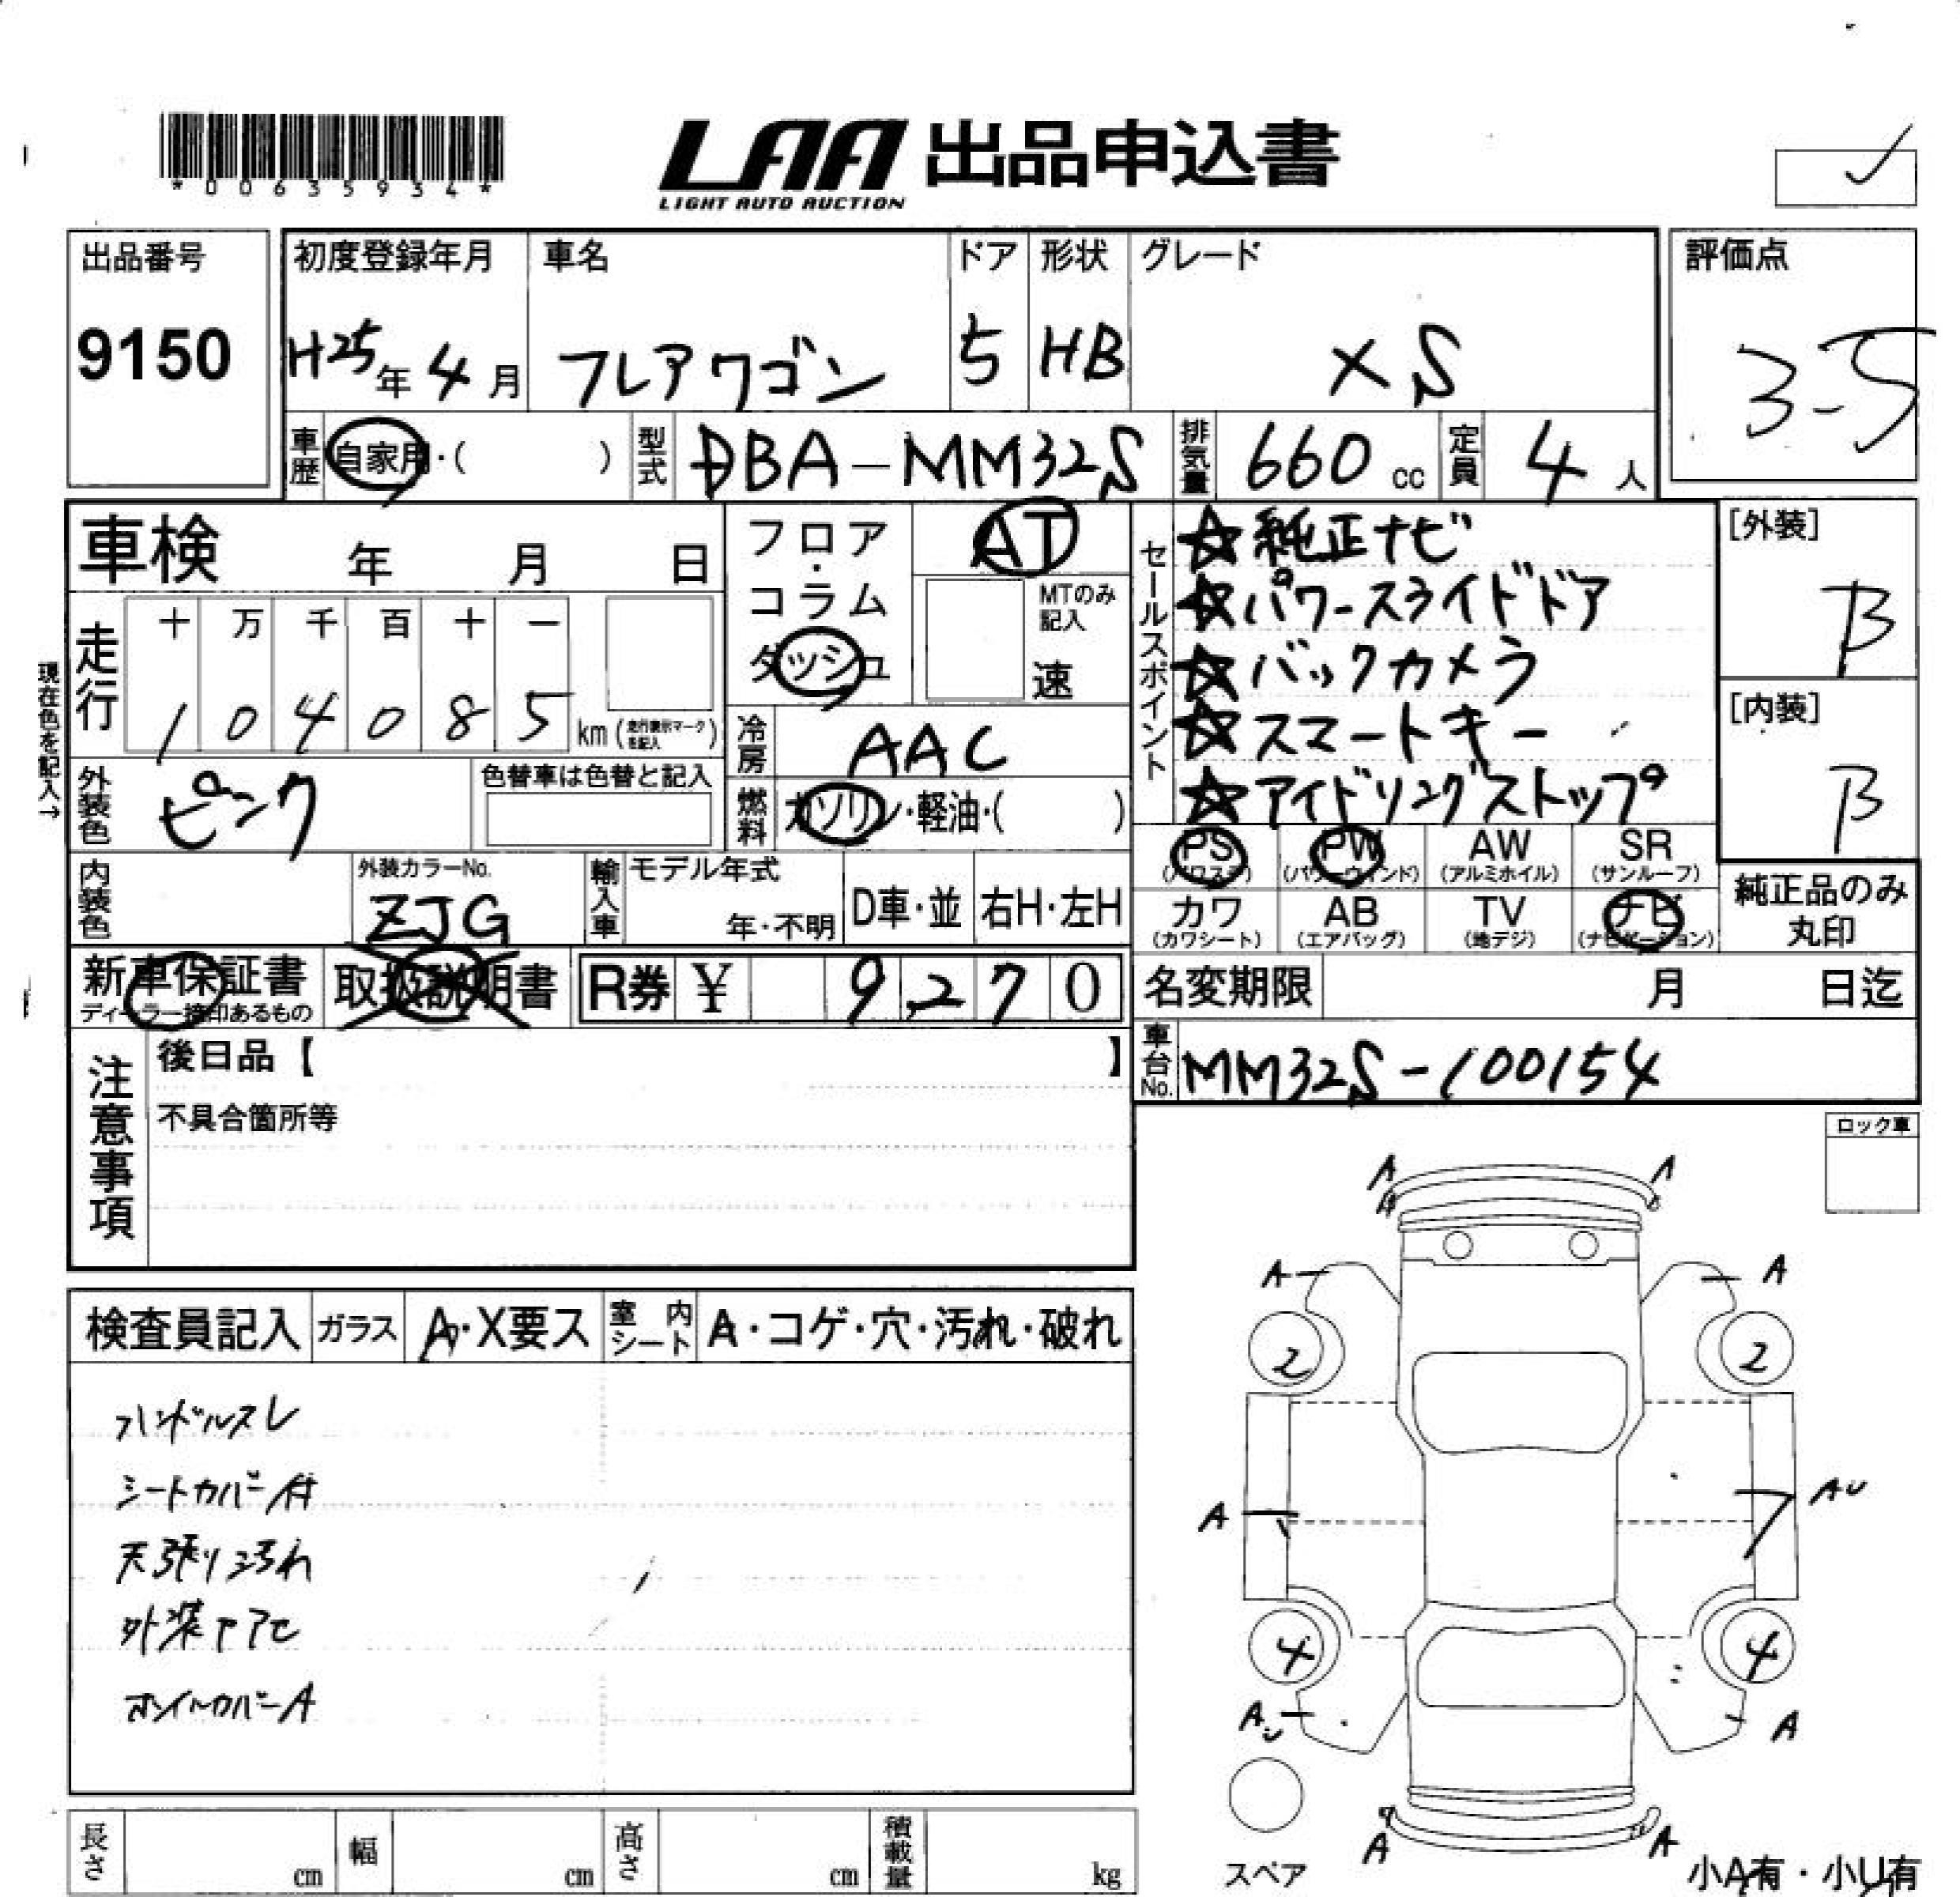 *00635934*
LAA 出品申込書
LIGHT AUTO AUCTION
出品番号
9150
初度登録年月
H25年4月
車名
フレアワゴン
ドア
5
形状
HB
グレード
XS
評価点
3-5
車歴
自家用・( )
型式
DBA-MM32S
排気量
660 cc
定員
4 人
車検 年 月 日
フロア・コラム
ダッシュ
AT
MTのみ記入
速
セールスポイント
☆純正ナビ
☆パワースライドドア
☆バックカメラ
☆スマートキー
☆アイドリングストップ
[外装]
B
[内装]
B
現在色を記入→
走行
十 万 千 百 十 一
1 0 4 0 8 5 km (走行表示マークを記入)
冷房
AAC
外装色
ピンク
色替車は色替と記入
燃料
ガソリン・軽油・( )
PS (パワステ)
PW (パワーウィンド)
AW (アルミホイル)
SR (サンルーフ)
カワ (カワシート)
AB (エアバッグ)
TV (地デジ)
ナビ (ナビゲーション)
純正品のみ丸印
内装色
外装カラーNo.
ZJG
輸入車
モデル年式
年・不明
D車・並
右H・左H
新車保証書
ディーラー捺印あるもの
取扱説明書
R券 ¥ 9270
名変期限 月 日迄
車台No.
MM32S-100154
注意事項
後日品【 】
不具合箇所等
ロック車
検査員記入
ガラス
A・X要ス
室内シート
A・コゲ・穴・汚れ・破れ
ハンドルスレ
シートカバー付
天張り汚れ
外装アアセ
ホイルカバーA
A A
A A
2 2
A AU
4 4
A A
A A
スペア
小A有・小U有
長さ cm
幅 cm
高さ cm
積載量 kg